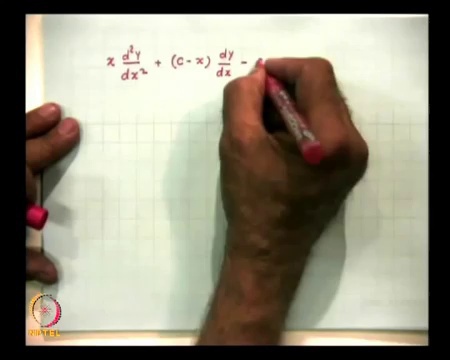 x d²y/dx² + (c - x) dy/dx -
NPTEL